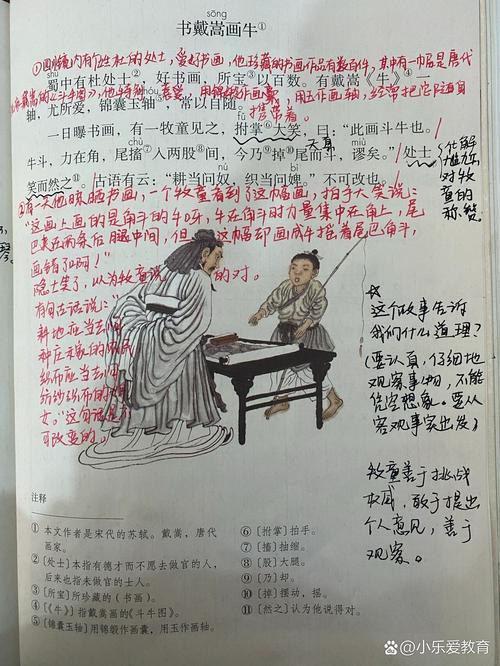 sōng
书戴嵩画牛①
①四川境内有个姓杜的处士，爱好书画，他珍藏的书画作品有数百件，其中有一幅是唐代
shǔ
蜀中有杜处士②，好书画，所宝③以百数。有戴嵩《牛》④一
戴嵩的《斗牛图》，他特别喜爱，用锦缎作画囊，用玉作画轴，经常把它随身
轴，尤所爱，锦囊玉轴⑤，常以自随。
携带着。
fǔ
一日曝书画，有一牧童见之，拊掌⑥大笑，曰：“此画斗牛也。
天真
chù
miù
牛斗，力在角，尾搐⑦入两股⑧间，今乃⑨掉⑩尾而斗，谬矣。”处士
nú
bì
笑而然之⑪。古语有云：“耕当问奴，织当问婢。”不可改也。
化解
尴尬
对牧
童的
称赞
②有一天他晾晒书画，一个牧童看到了这幅画，拍手大笑说：
“这画上画的是角斗的牛呀，牛在角斗时力量集中在角上，尾
巴夹在两条后腿中间，但这幅却画成牛摇着尾巴角斗，
画错了啊！”
隐士笑了，以为牧童说的对。
有句古话说：“
耕地应当去问
种庄稼的农民
织布应当去问
纺纱织布的
女。”这句话是
可改变的。
这个故事告诉
我们什么道理？
(要认真，仔细地
观察事物，不能
凭空想象。要从
客观事实出发)
牧童善于挑战
权威，敢于提出
个人意见，善于
观察。
注释
① 本文作者是宋代的苏轼。戴嵩，唐代
画家。
②〔处士〕本指有德才而不愿去做官的人，
后来也指未做官的士人。
③〔所宝〕所珍藏的（书画）。
④〔《牛》〕指戴嵩画的《斗牛图》。
⑤〔锦囊玉轴〕用锦缎作画囊，用玉作画轴。
⑥〔拊掌〕拍手。
⑦〔搐〕抽缩。
⑧〔股〕大腿。
⑨〔乃〕却。
⑩〔掉〕摆动，摇。
⑪〔然之〕认为他说得对。
@小乐爱教育